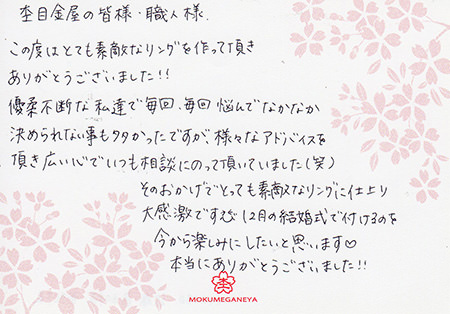 杢目金屋の皆様・職人様
この度はとても素敵なリングを作って頂き
ありがとうございました!!
優柔不断な私達で毎回、毎回悩んでなかなか
決められない事も多かったですが、様々なアドバイスを
頂き広い心でいつも相談にのって頂いていました(笑)
そのおかげでとっても素敵なリングに仕上り
大感激です 12月の結婚式で付けるのを
今から楽しみにしたいと思います♡
本当にありがとうございました!!
MOKUMEGANEYA